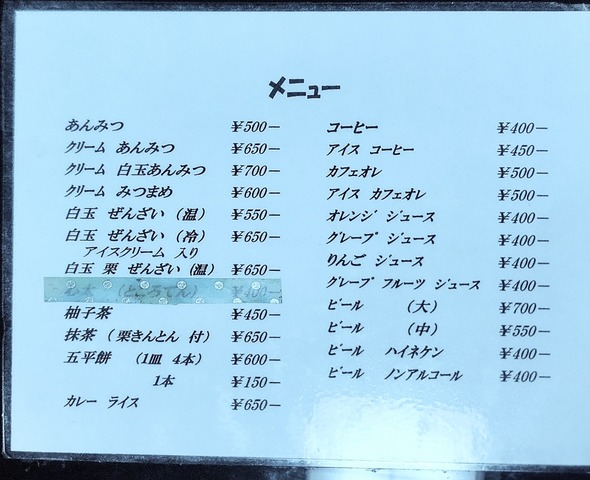 メニュー
あんみつ ￥500－
クリーム あんみつ ￥650－
クリーム 白玉あんみつ ￥700－
クリーム みつまめ ￥600－
白玉 ぜんざい （温） ￥550－
白玉 ぜんざい （冷） ￥650－
アイスクリーム 入り
白玉 栗 ぜんざい （温） ￥650－
（ところてん） ￥400－
柚子茶 ￥450－
抹茶 （栗きんとん 付） ￥650－
五平餅 （1皿 4本） ￥600－
1本 ￥150－
カレー ライス ￥650－
コーヒー ￥400－
アイス コーヒー ￥450－
カフェオレ ￥500－
アイス カフェオレ ￥500－
オレンジ ジュース ￥400－
グレープ ジュース ￥400－
りんご ジュース ￥400－
グレープ フルーツ ジュース ￥400－
ビール （大） ￥700－
ビール （中） ￥550－
ビール ハイネケン ￥400－
ビール ノンアルコール ￥400－